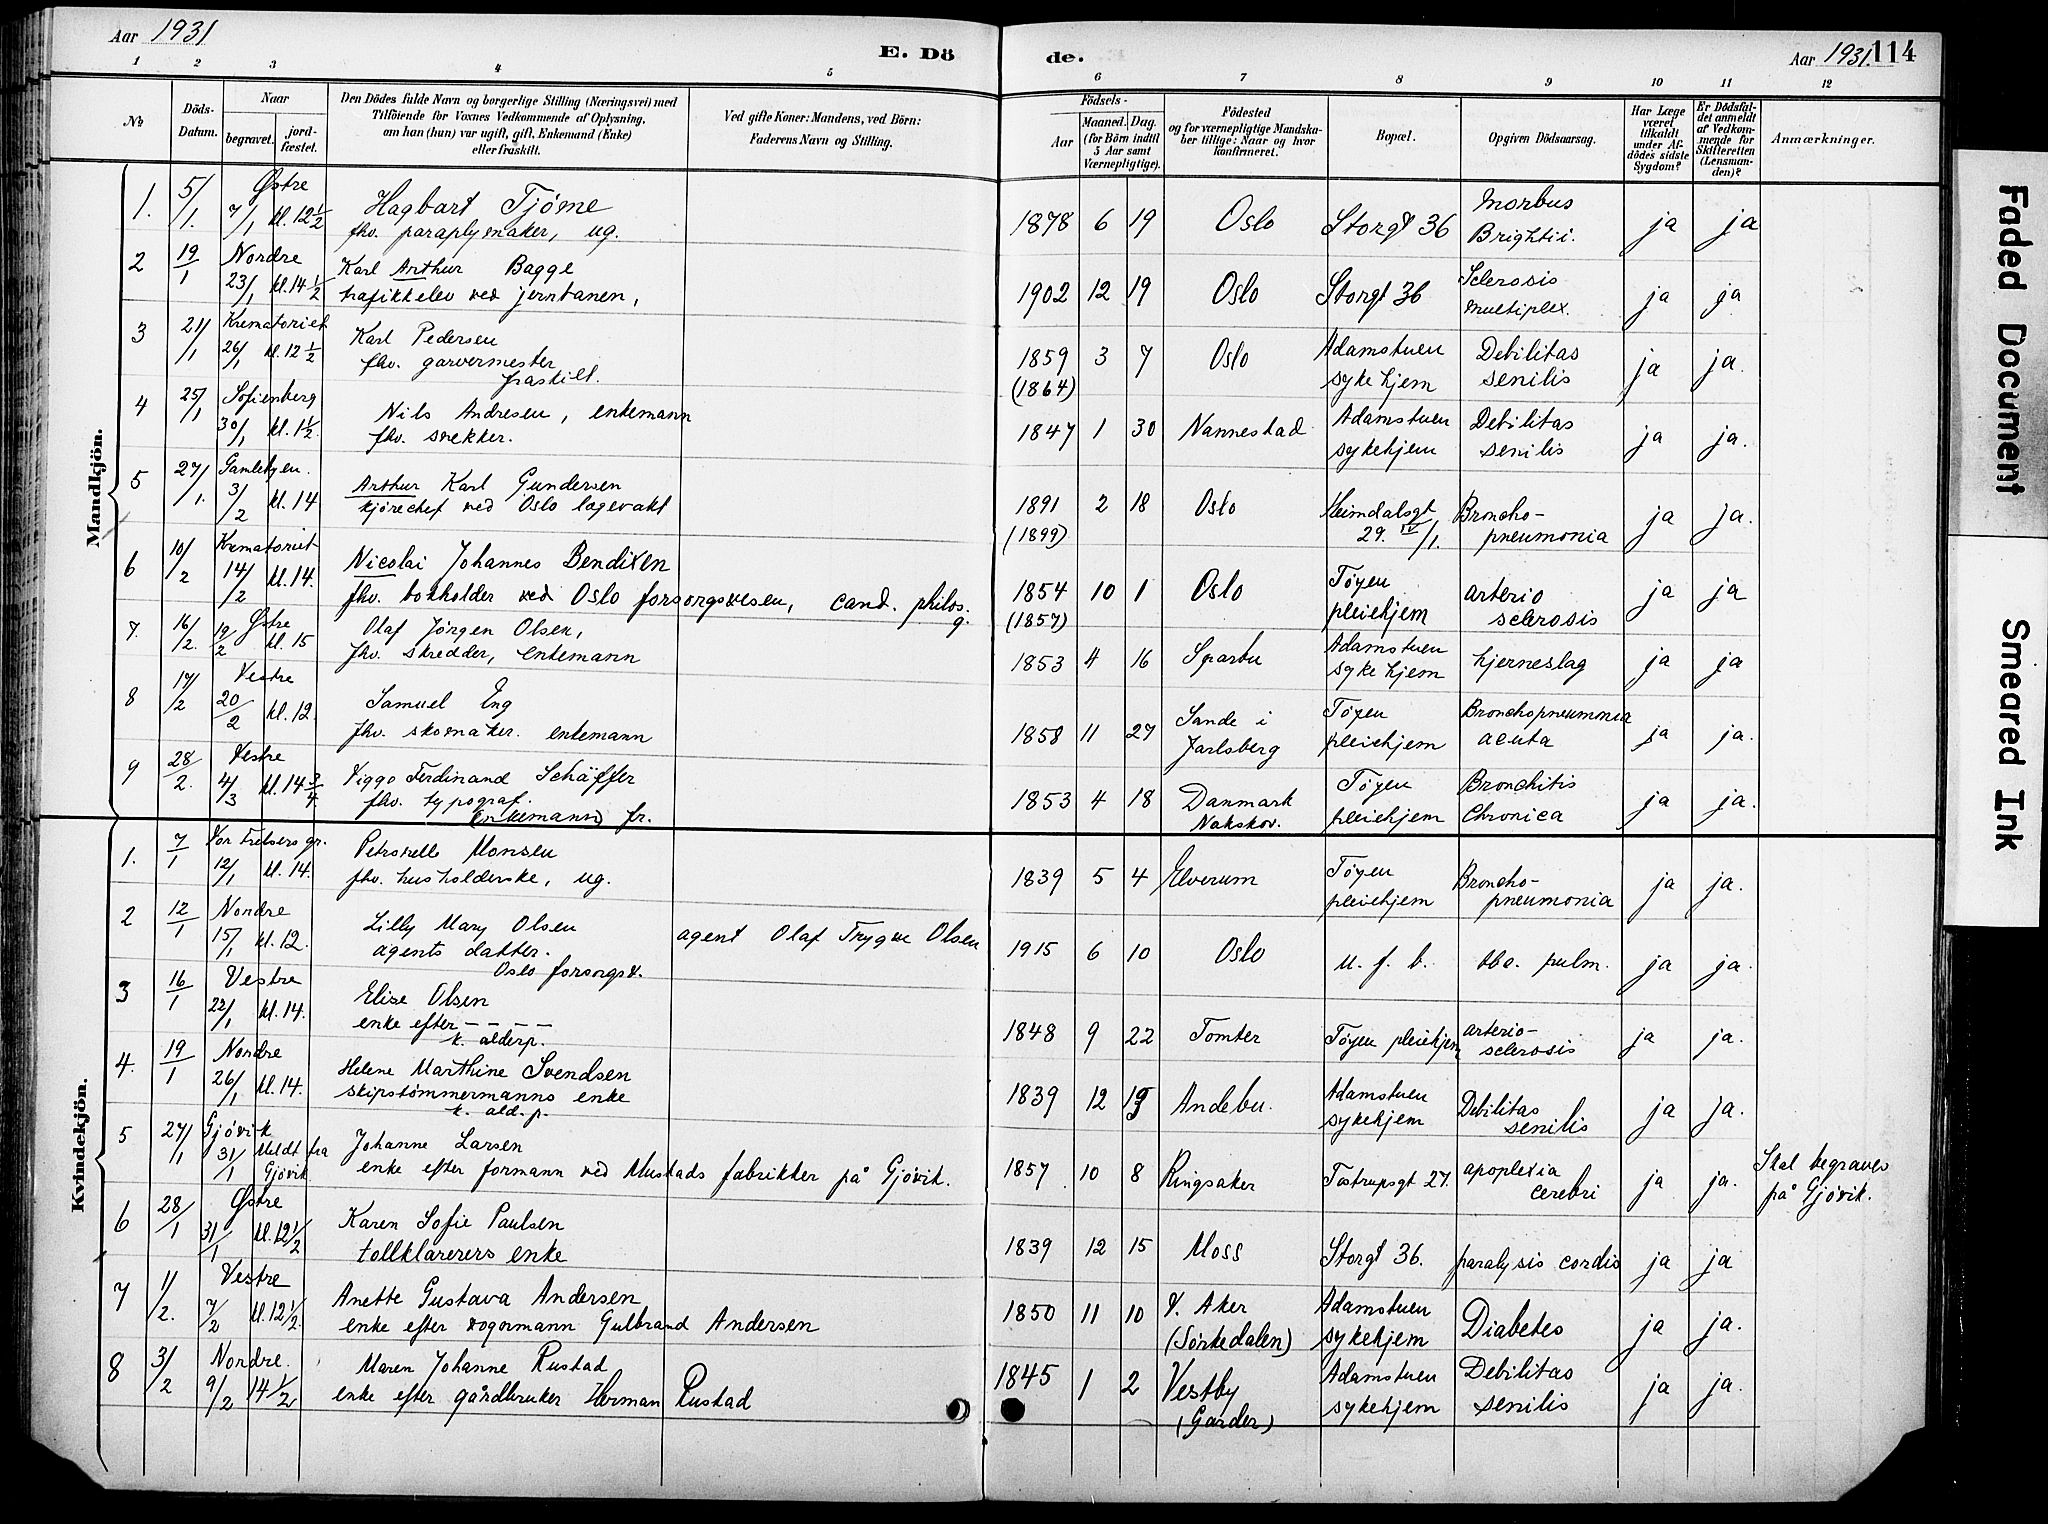 Aar 1931
E. Dö
de.
Aar 1931. 114
1 2 3 4 5 6 7 8 9 10 11 12
No
Döds-Datum.
Naar
begravet.
jord-fæstet.
Den Dödes fulde Navn og borgerlige Stilling (Næringsvei) med
Tilföiende for Voxnes Vedkommende af Oplysning,
om han (hun) var ugift, gift, Enkemand (Enke)
eller fraskilt.
Ved gifte Koner: Mandens, ved Börn:
Faderens Navn og Stilling.
Födsels-
Aar
Maaned. Dag.
(for Börn indtil
5 Aar samt
Værnepligtige).
Födested
og for værnepligtige Mandska-
ber tillige: Naar og hvor
konfirmeret.
Bopæl.
Opgiven Dödsaarsag.
Har Læge
været
tilkaldt
under Af-
dödes sidste
Sygdom?
Er Dödsfal-
det anmeldt
af Vedkom-
mende for
Skifteretten
(Lensman-
den)?
Anmærkninger.
Mandkjön.
1. 5/1. Østre
7/1 kl. 12 1/2
Hagbart Tjøme
fhv. paraplymaker, ug.
1878 6 19 Oslo Storgt 36 Morbus
Brightii. ja ja
2 19/1 Nordre
23/1 kl. 14 1/2
Karl Arthur Bagge
trafikkelev ved jernbanen,
1902 12 19 Oslo Storgt 36 Sclerosis
multiplex. ja ja
3 21/1 Krematoriet
26/1 kl. 12 1/2
Karl Pedersen
fhv. garvermester
fraskilt.
1859 3 7 Oslo Adamstuen
(1864) sykehjem Debilitas
senilis ja ja.
4 25/1 Sofienberg
30/1 kl. 1 1/2.
Nils Andresen, enkemann
fhv. snekker.
1847 1 30 Nannestad Adamstuen
sykehjem Debilitas
senilis ja ja.
5 27/1. Gamlebyen.
3/2 kl. 14
Arthur Karl Gundersen
kjørechef ved Oslo legevakt
1891 2 18 Oslo Heimdalsgt
(1899) 29. IV/1. Broncho-
pneumonia ja ja.
6 10/2 Krematoriet
14/2 kl. 14.
Nicolai Johannes Bendixen
fhv. bokholder ved Oslo forsorgsvesen, cand. philos.
g.
1854 10 1 Oslo Tøyen
(1857) pleiehjem arterio
sclerosis ja ja
7. 16/2. Østre
19/2 kl. 15
Olaf Jørgen Olsen,
fhv. skredder, enkemann
1853 4 16 Sparbu Adamstuen
sykehjem hjerneslag ja ja
8 17/2 Vestre
20/2 kl. 12.
Samuel Eng
fhv. skomaker. enkemann
1858 11 27 Sande i
Jarlsberg Tøyen
pleiehjem Bronchopneumonia
acuta ja ja.
9 28/2. Vestre
4/3 kl. 14 3/4
Viggo Ferdinand Schäffer
fhv. typograf.
(enkemann) fr.
1853 4 18 Danmark
Nakskov. Tøyen
pleiehjem Bronchitis
Chronica ja ja.
Kvindekjön.
1. 7/1 Vor Frelsers gr.
12/1 kl. 14.
Petronelle Monsen
fhv. husholderske, ug.
1839 5 4 Elverum Tøyen
pleiehjem Broncho-
pneumonia ja ja.
2 12/1 Nordre
15/1 kl. 12.
Lilly Mary Olsen
agents datter.
Oslo forsorgsv.
agent Olaf Trygve Olsen
1915 6 10 Oslo u. f. b. tbc. pulm. ja ja.
3 16/1 Vestre
22/1 kl. 14.
Elise Olsen
enke efter - - - -
k. alderp.
1848 9 22 Tomter Tøyen pleiehjem arterio-
sclerosis ja ja.
4. 19/1 Nordre
26/1 kl. 14.
Helene Marthine Svendsen
skipstømmermanns enke
k. ald. p.
1839 12 Andebu. Adamstuen
sykehjem Debilitas
senilis ja ja.
5 27/1 Gjøvik
31/1 Meldt fra
Gjøvik
Johanne Larsen
enke efter formann ved Mustads fabrikker på Gjøvik.
1857 10 8 Ringsaker Tostrupsgt 27. apoplexia
cerebri ja ja. Skal begraves
på Gjøvik.
6 28/1 Østre
31/1 kl. 12 1/2
Karen Sofie Paulsen
tollklarerers enke
1839 12 15 Moss Storgt 36. paralysis cordis ja ja
7 1/2. Vestre
7/2 kl. 12 1/2.
Anette Gustava Andersen
enke efter vognmann Gulbrand Andersen
1850 11 10 V. Aker
(Sørkedalen) Adamstuen
sykehjem Diabetes ja ja.
8 3/2 Nordre.
9/2 14 1/2
Maren Johanne Rustad
enke efter gårdbruker Herman Rustad
1845 1 2 Vestby
(Garder) Adamstuen
sykehjem Debilitas
senilis ja ja.
Faded Document
Smeared Ink